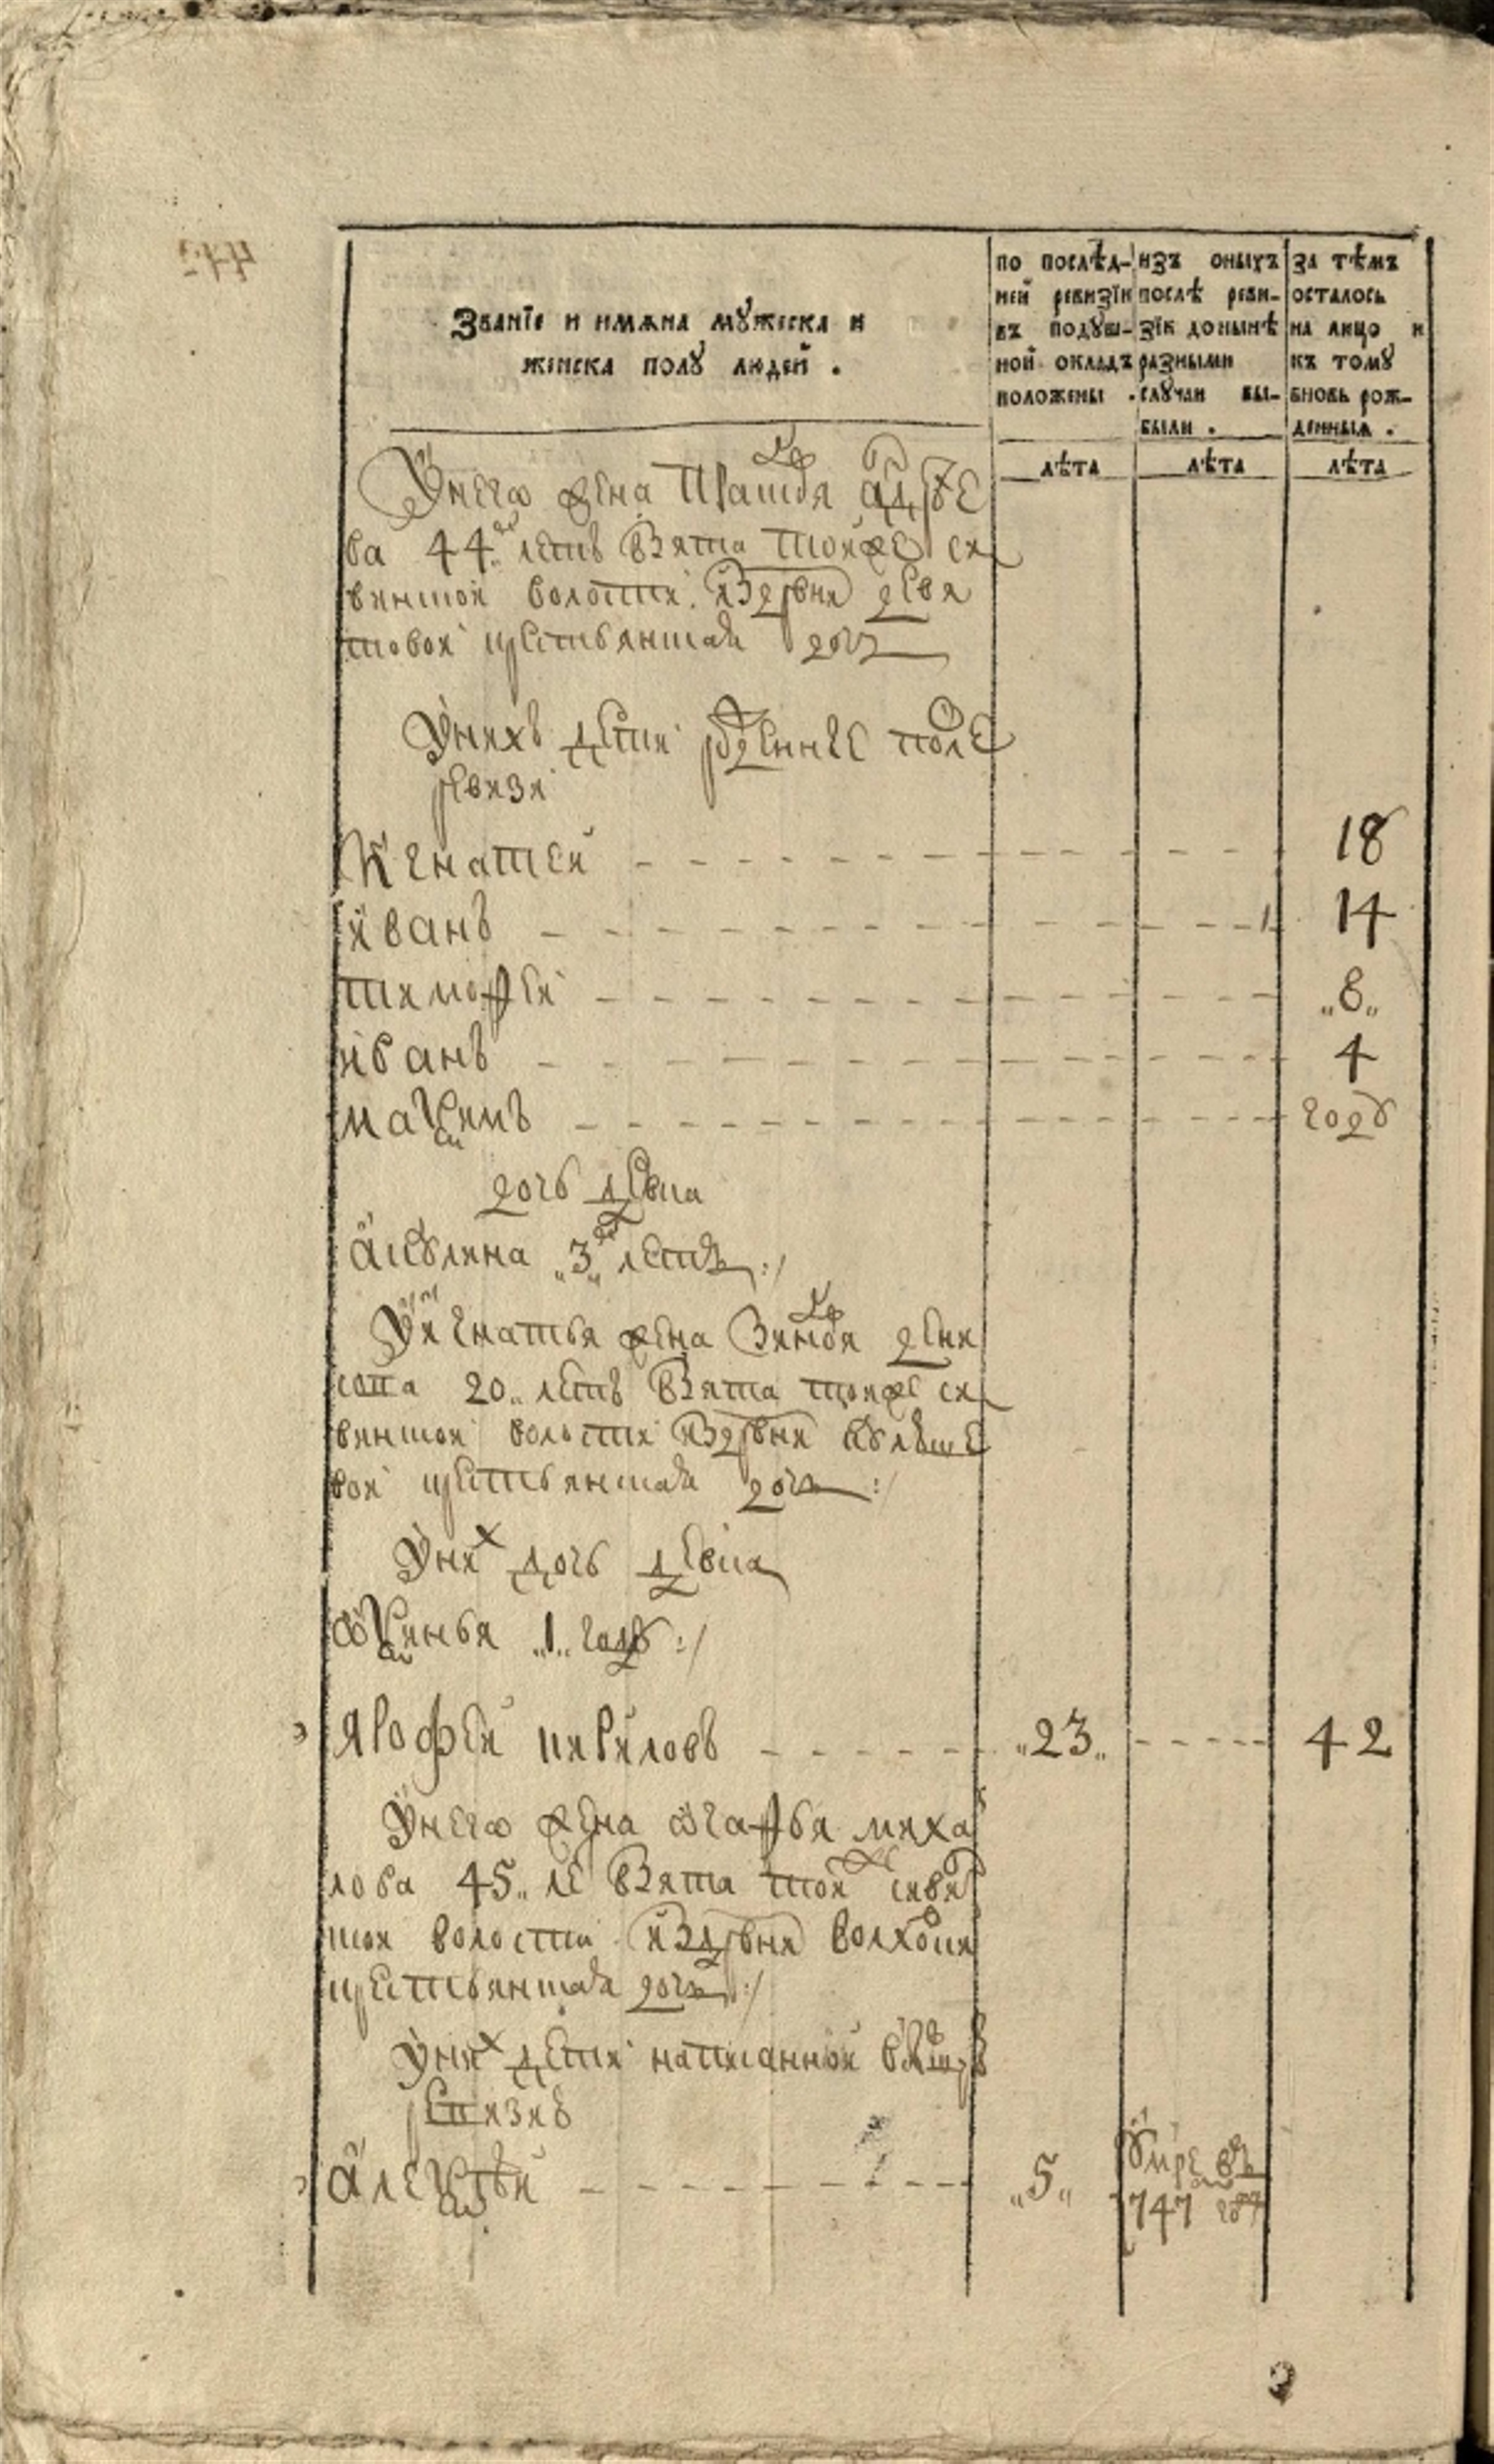 Званїе и имѧна мꙋжеска и
женска полꙋ людей .
по послѣд-
ней ревизїи
въ подꙋш-
ной окладъ
положены .
изъ оныхъ
послѣ реви-
зїи донынѣ
разными
слꙋчаи вы-
были .
за тѣмъ
осталось
на лицо и
къ томꙋ
вновь рож-
денныя .
лѣта
лѣта
лѣта
Унегѡ жена Прасковя андрѣе
ва 44 летъ взята тоиже си
винской волости издрвни девя
товои крестьянская доч
Унихъ дети рожденные после
ревизи
Игнатеи 18
иванъ 14
тимофеи „8„
иванъ 4
маѯимъ годъ
дочь девка
акулина „3„ летъ :/
Уигнатья жена Зиновя дени
сова 20„ летъ взята тоиже си
винскои волости издрвни
вои крестьянская доч :/
Уних дочь девка
ѡѯинья „1„ годъ :/
ярофеи кириловъ „23„ 42
Унегѡ жена ѡгафья михаи
лова 45„ ле взята тоиже сивин
скои волости издрвни
крестьянская доч :/
Уних дети написанной
ревизиѣ
алеѯѣи „5„ умре въ
747 году